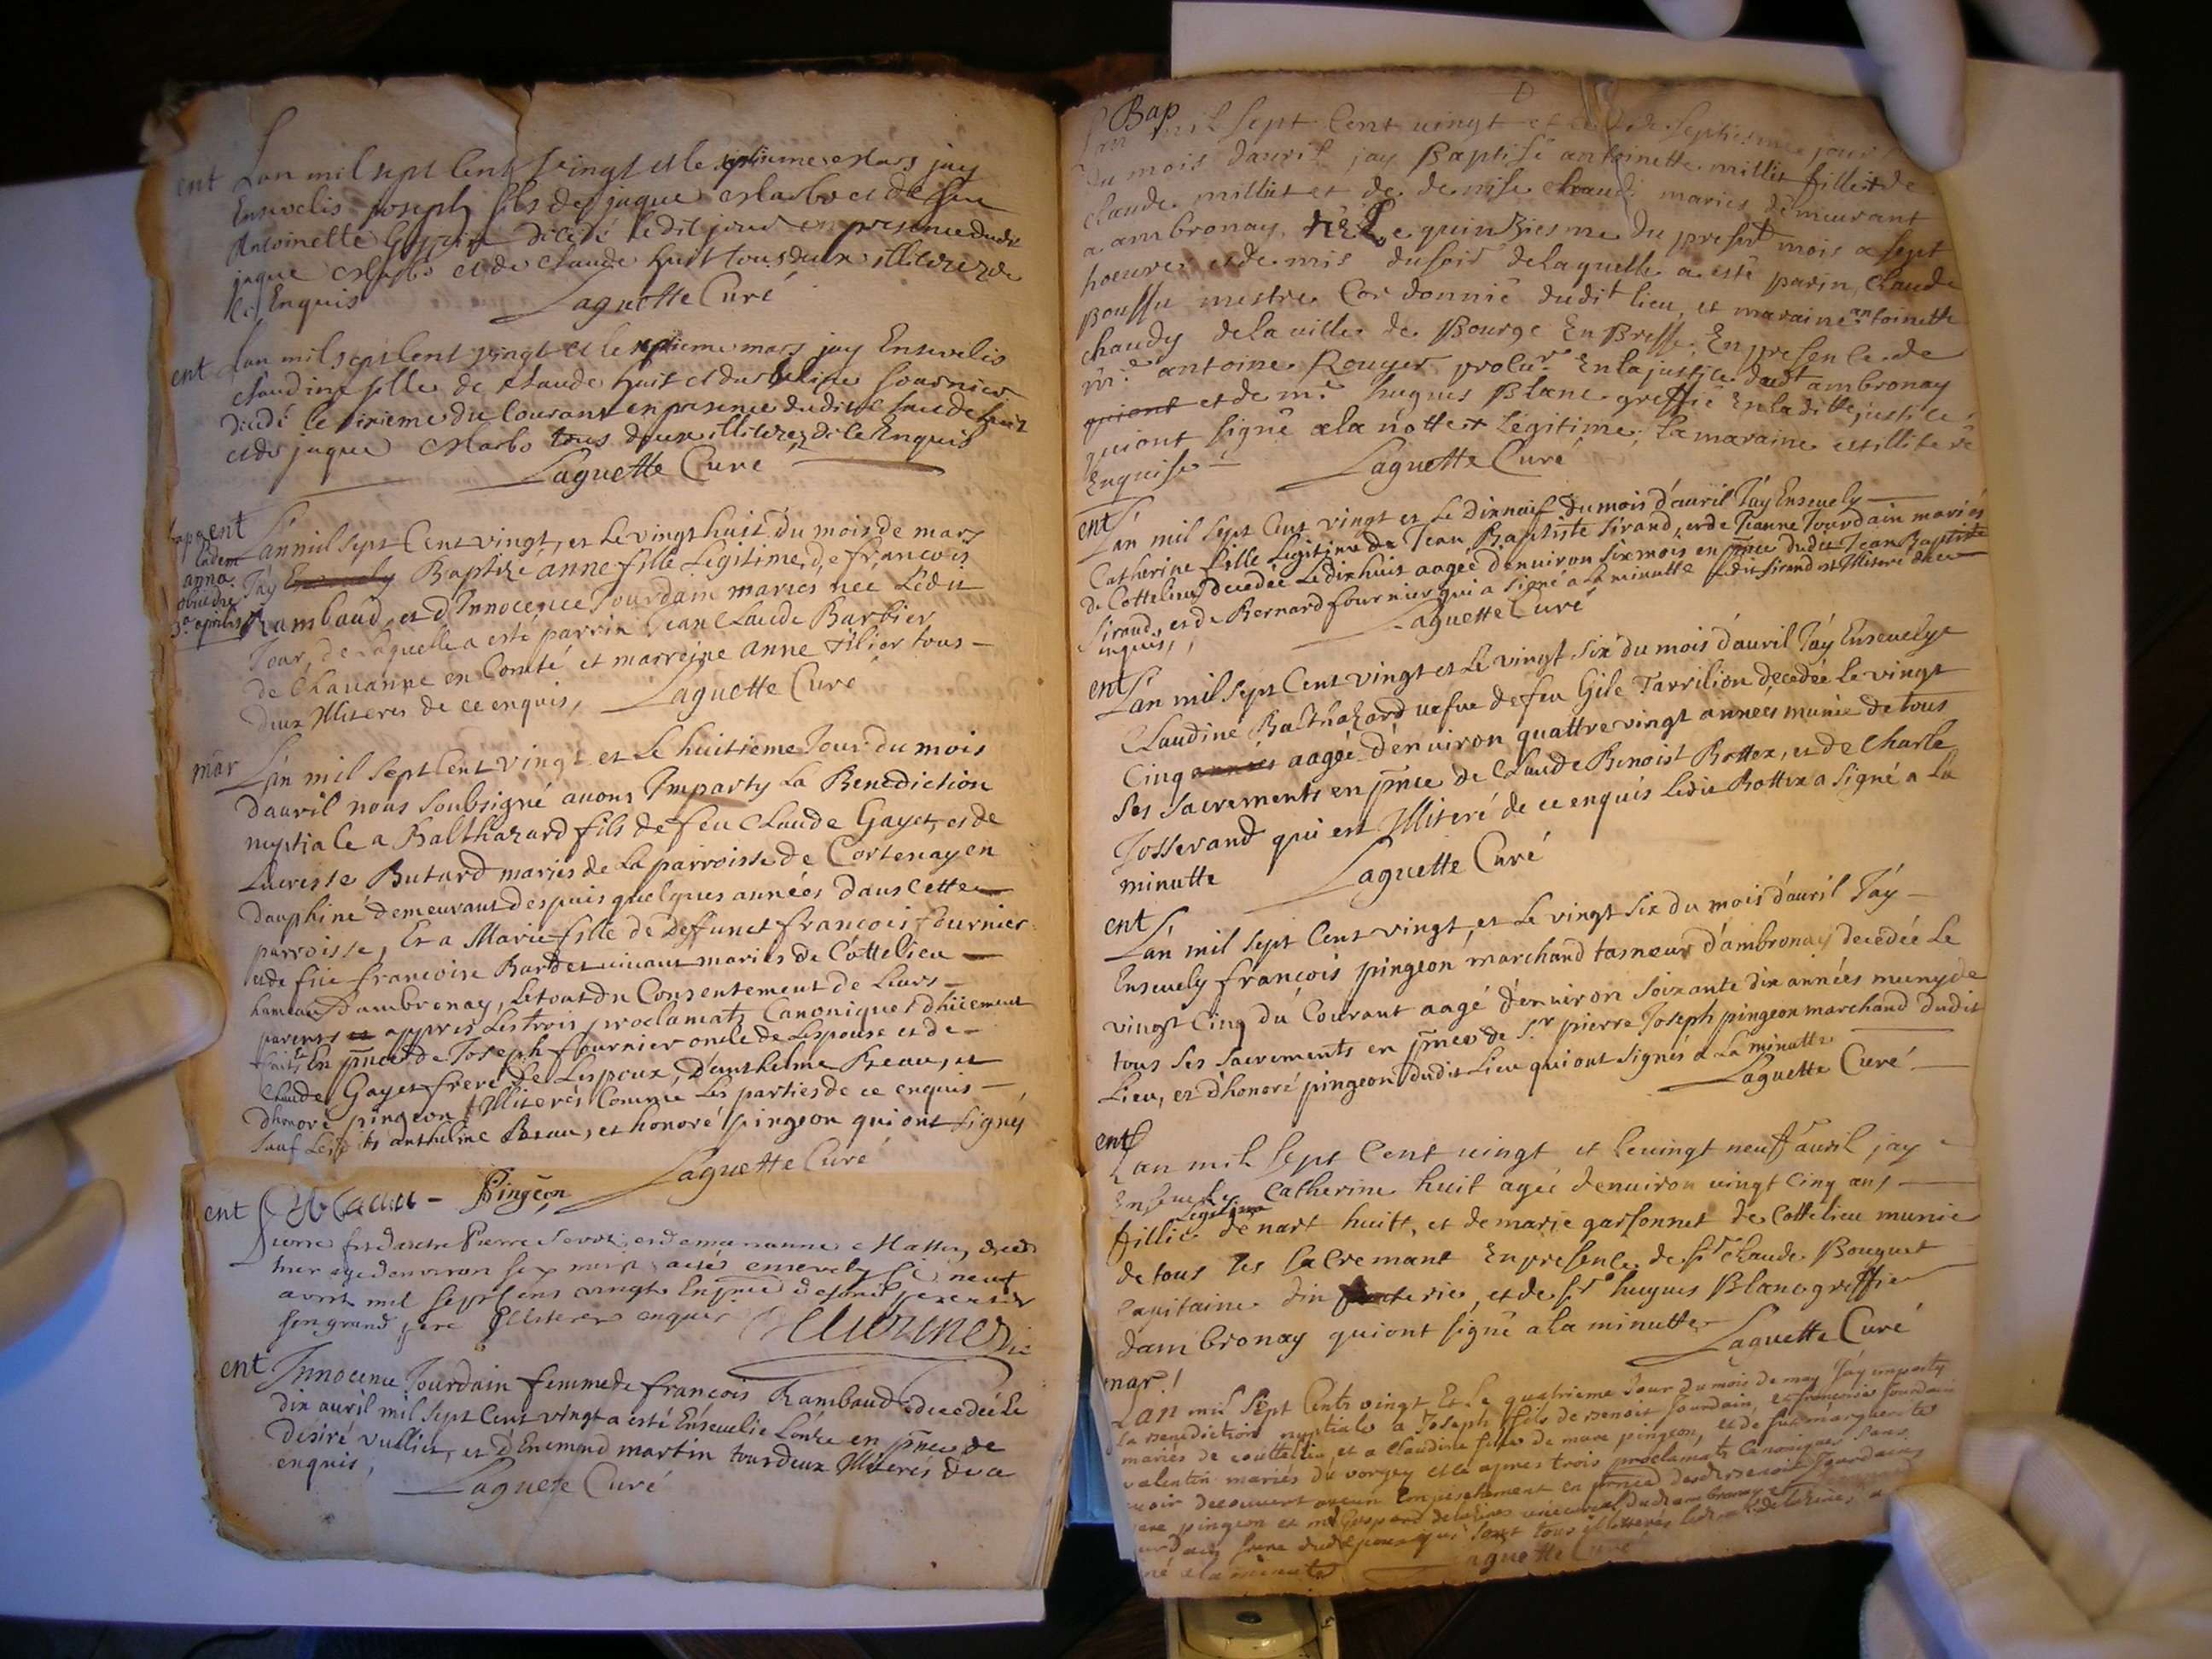 ent Lan mil sept Cent Vingt et le septieme mars jay
Ensevelis joseph fils de jaque Marbo et de feu
Antoinette décédé le dit jour en presence dudit
jaque Marbo et de Claude huit tous deux illiterez de
Ce Enquis Laguette Curé
ent Lan mil sept Cent vingt et le septieme mars jay Ensevelis
claudine fille de Claude huit et dus fournier
décédé le sixieme du Courant en presence dudit Claude huit
et de jaque Marbo tous deux illiterez de Ce Enquis
Laguette Curé
ent
L'an mil sept Cent vingt, et Le vingt huit du mois de mars
J'ay Baptizé anne fille Legitime de francois
Rambaud, et d'Innocence Jourdain mariés née Ledit
Jour, de Laquelle a esté parrin Jean Claude Barbier
de Chavanne en Comté et marreine anne tous
deux Illiteres de ce enquis, Laguette Curé
mar L'an mil Sept Cent vingt et Le huitieme Jour du mois
d'auril nous Soubsigné auons Imparty La Benediction
nuptiale a Balthazard fils de feu Claude Gayet, et de
Lucresse Butard mariés de La parroisse de Cortenay en
Dauphiné demeurant despuis quelques années dans Cette
parroisse, Et a Marie fille de Deffunct francois fournier
et de feüe francoise Bardet vivant mariés de Cottelieu
hameau d'ambronay, Le tout du Consentement de Leurs
parents et appres Les trois proclamats Canoniques dhüement
faits En pñce de Joseph fournier oncle de Lespouse et de
Claude Gayet frere de Lespoux, d'anthelme Beau, et
Dhonoré pingeon Illiterés Comme Les parties de ce enquis
Sauf Lesdits anthelme Beau, et honoré pingeon qui ont signés
Laguette Curé
Pingeon
ent pierre fils de Pierre et de marianne decede
hier agé denviron six mois a esté ensevely le neuf
avril mil sept cens vingt En pñce de son pere et de
son grand pere Illiteres enquis
ent Innocence Jourdain femme de francois Rambaud decedée Le
dix auril mil Sept Cent vingt a esté Enseuelie en pñce de
Désiré Vulliet, et d'Enemond martin tous deux Illiterés de ce
enquis, Laguette Curé
Bap
Lan mil sept Cent vingt et le septiesme jour
du mois dauril jay Baptisé antoinette millit fillie de
claude millit et de denise chaudi mariés demeurant
a ambronay, née Le quinziesme du present mois a sept
hoeures et demis du soir de laquelle a esté parin Claude
Bouffu mestre Cordonnié dudit lieu, et maraine antoinette
chaudy de la ville de Bourge En Bresse En presence de
me antoine Rouyer procur En la justice dudt ambronay
quiont et de me hugues Blanc greffié En la ditte justice
quiont signé a la notte Legitime, la maraine est illiteré
Enquise Laguette Curé
ent L'an mil Sept Cent vingt et Le Dixneuf du mois d'auril J'ay Enseuely
Catherine fille Legitime de Jean Baptiste Sirand, et de Jeanne Jourdain mariés
de Cottelieu decedée Le dixhuit aagée d'enuiron six mois en pñce dudit Jean Baptiste
Sirand, et de Bernard fournier qui a signé a La minutte Ledit Sirand est Illiteré de ce
enquis, Laguette Curé
ent L'an mil Sept Cent vingt et Le vingt Six du mois d'auril J'ay Enseuelye
Claudine Balthazard vefue de feu Gile Tarrilion decedée Le vingt
Cinq années aagée d'enuiron quattre vingt années munie de tous
Ses Sacrements en pñce de Claude Benoist Bottex, et de Charle
Josserand qui est Illiteré de ce enquis Ledit Bottex a Signé a La
minutte Laguette Curé
ent L'an mil Sept Cent vingt, et Le vingt Six du mois d'auril J'ay
Enseuely francois pingeon marchand tasneur d'ambronay decedée Le
vingt Cinq du Courant aagé d'enuiron Soixante dix années muny de
tous Ses Sacrements en pñce de Sr pierre Joseph pingeon marchand dudit
Lieu, et d'honoré pingeon dudit Lieu qui ont Signés a La minutte
Laguette Curé
ent Lan mil Sept Cent vingt et le vingt neuff auril jay
Enseuely Catherine huit agée denuiron vingt Cinq ans
fillie Legitime de nart huitt, et de marie garsonnet de Cottelieu munie
de tous ses sacremant En presence de sr claude Bouquet
Capitaine dinfanterie, et de sr hugues Blanc greffier
dambronay quiont signé a la minutte
Laguette Curé
mar
Lan mil Sept Cents vingt Et Le quatrieme Jour du mois de may J'ay imparty
La Benediction nuptiale a Joseph fils de Benoit Jourdain, et francoise Jourdain
mariés de couttelieu, et a Claudine fille de marc pingeon, et de feüe marguerite
valentin mariés du vorgey et ce apres trois proclamats Canoniques Sans
avoir decouvert aucun empeschement en pñce desdits Benoit Jourdain
marc pingeon et
sont tous illiterés
Laguette Curé